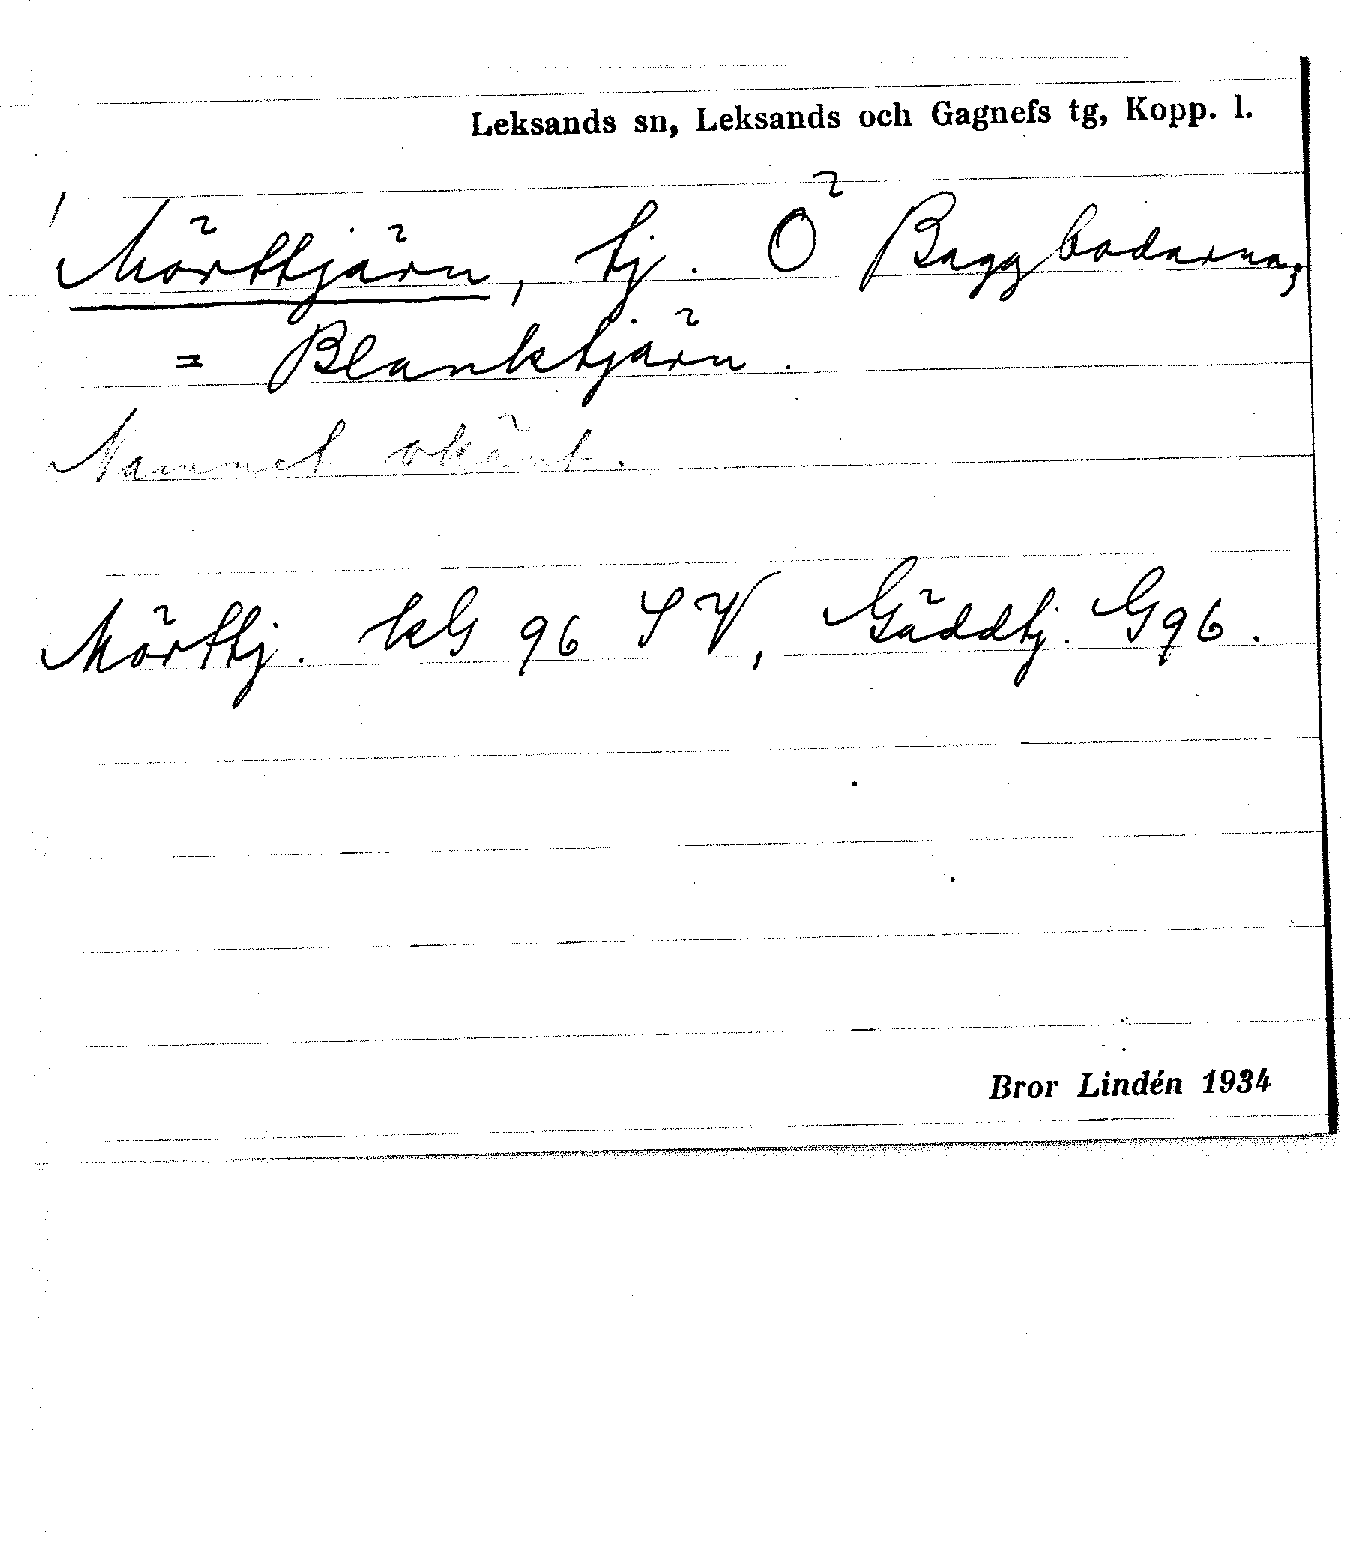 Leksands sn, Leksands och Gagnefs tg, Kopp. l.
Mörttjärn, tj. Ö Baggbodarna,
= Blanktjärn.
Namnet okänt.
Mörttj. kG 96 SV, Gäddtj. G96.
Bror Lindén 1934